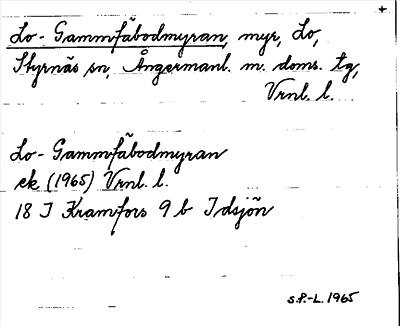 Lo-Gammfäbodmyran, myr, Lo,
Styrnäs sn, Ångermanl. m. doms. tg,
Vrnl. l.
Lo-Gammfäbodmyran
ek (1965) Vrnl. l.
18 I Kramfors 9 b Idsjön
S.P.-L. 1965